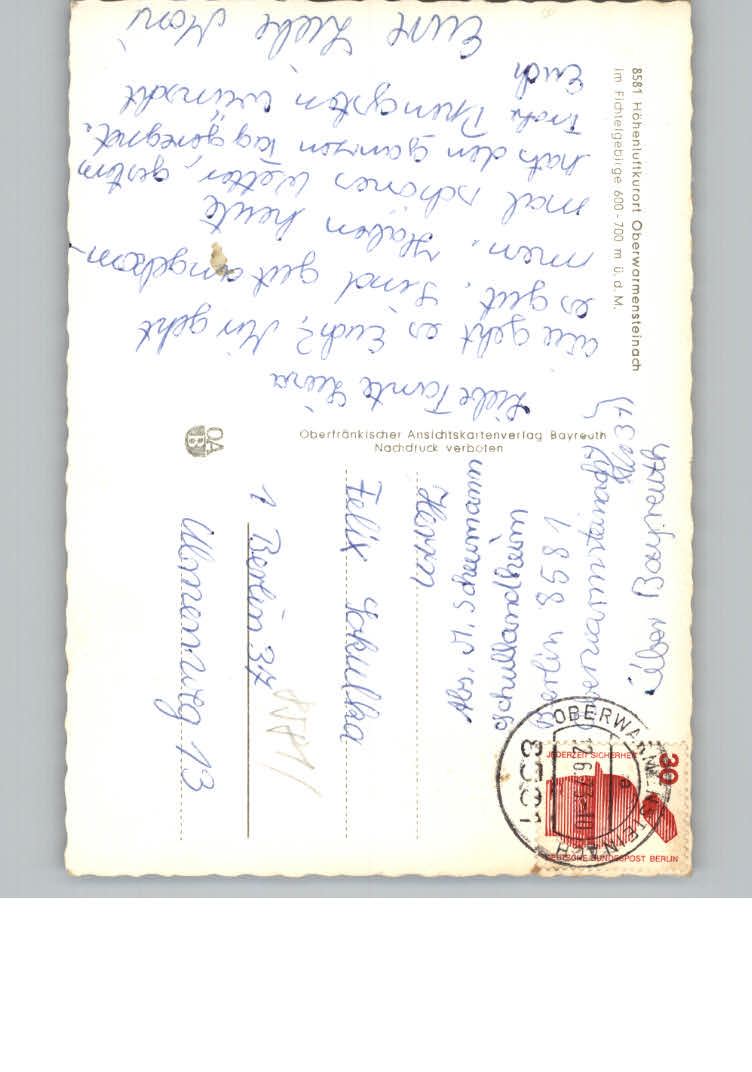 8581 Höhenluftkurort Oberwarmensteinach
im Fichtelgebirge 600 - 700 m ü. d. M.
Liebe Tante
wie geht es Euch? Mir geht
es gut. Sind gut angekom-
men. Haben heute
mal schönes Wetter, gestern
hat's den ganzen Tag geregnet.
Frohe Pfingsten wünscht
Euch
Eure liebe
Oberfränkischer Ansichtskartenverlag Bayreuth
Nachdruck verboten
OA
B
Abs. M. Scheumann
Schullandheim
Berlin 8581
Oberwarmsteinach
über Bayreuth
Herrn
Felix
1 Berlin 37
Ulmenweg 13
OBERWARMENSTEINACH
12.6.73-10
8581
JEDERZEIT SICHERHEIT
30
DEUTSCHE BUNDESPOST BERLIN